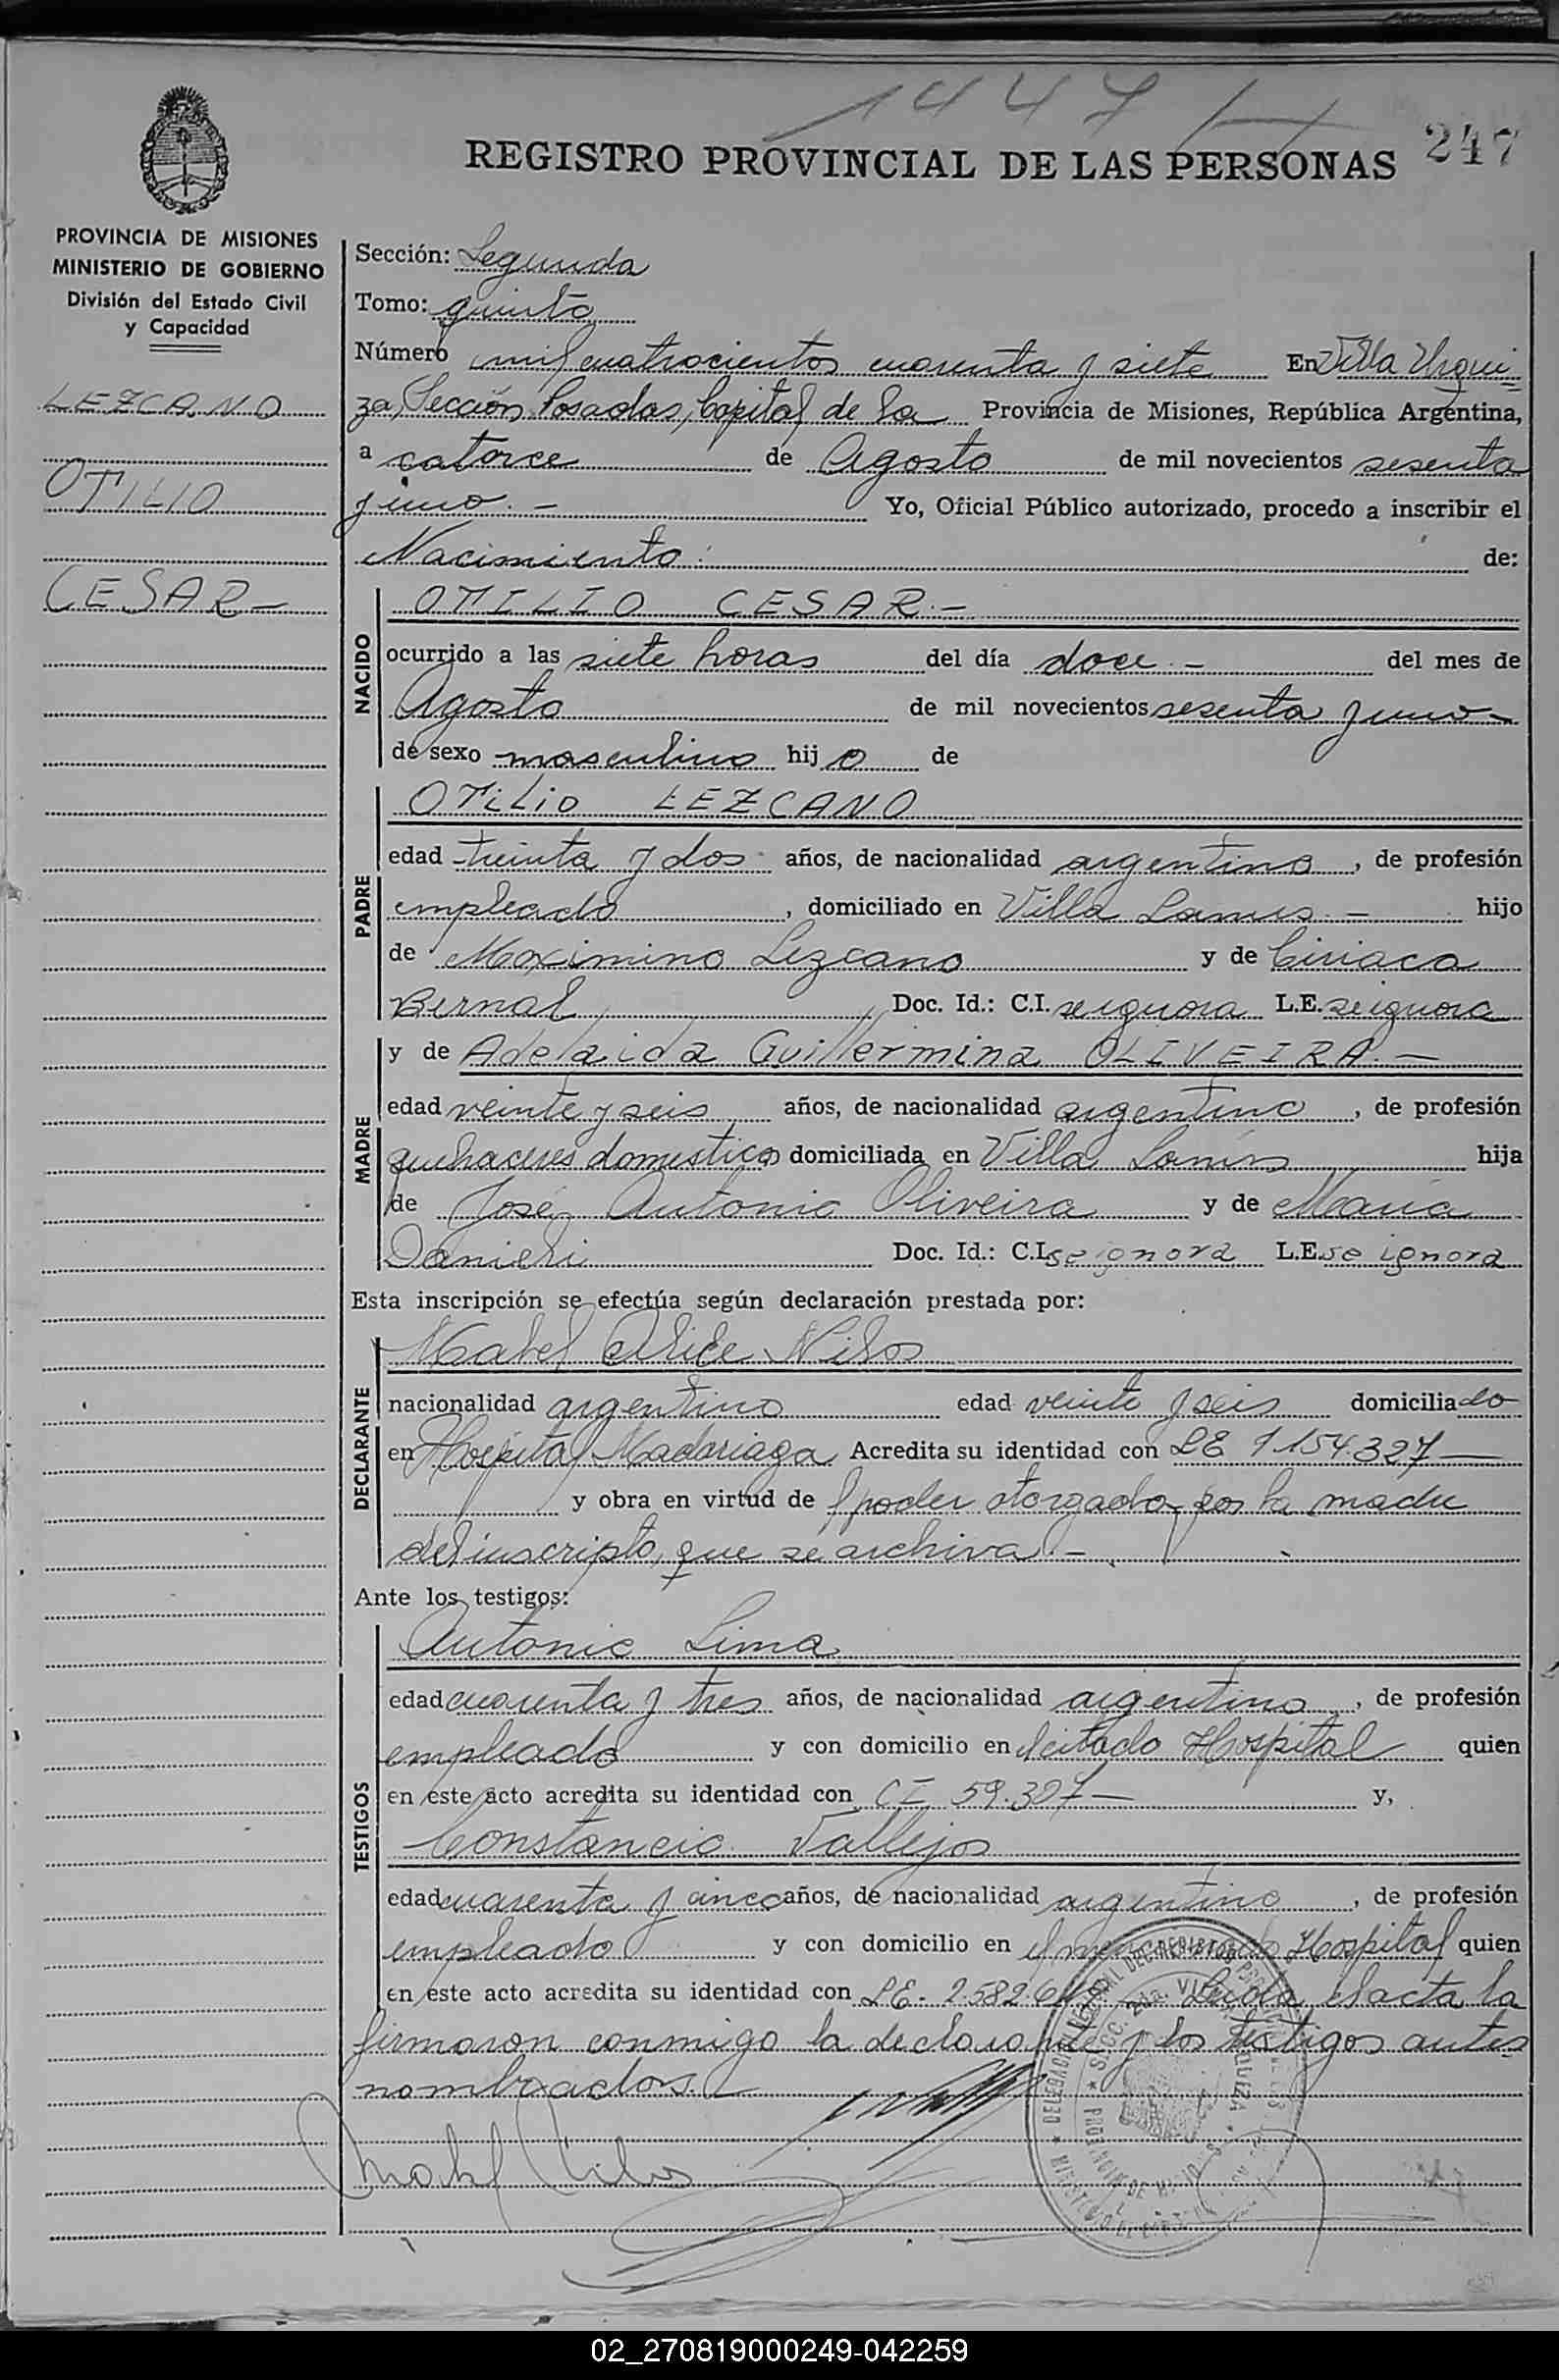 1447
247
REGISTRO PROVINCIAL DE LAS PERSONAS
PROVINCIA DE MISIONES
MINISTERIO DE GOBIERNO
División del Estado Civil
y Capacidad
LEZCANO
OTILIO
CESAR-
Sección: Segunda
Tomo: quinto
Número mil cuatrocientos cuarenta y siete En Villa Urqui
za, Sección Posadas, Capital de la Provincia de Misiones, República Argentina,
a catorce de Agosto de mil novecientos sesenta
y uno.- Yo, Oficial Público autorizado, procedo a inscribir el
Nacimiento: de:
NACIDO
OTILIO CESAR.-
ocurrido a las siete horas del día doce.- del mes de
Agosto de mil novecientos sesenta y uno-
de sexo masculino hijo de
PADRE
OTILIO LEZCANO
edad treinta y dos años, de nacionalidad argentino, de profesión
empleado, domiciliado en Villa Lanus.- hijo
de Maximino Lezcano y de Ciriaca
Bernal Doc. Id.: C.I. se ignora L.E. se ignora
y de Adelaida Guillermina OLIVEIRA.-
MADRE
edad veinte y seis años, de nacionalidad argentina, de profesión
quehaceres domesticos domiciliada en Villa Lanús hija
de José Antonio Oliveira y de María
Danieli Doc. Id.: C.I. se ignora L.E. se ignora
Esta inscripción se efectúa según declaración prestada por:
DECLARANTE
Mabel Nilos
nacionalidad argentina edad veinte y seis domiciliado
en Hospital Madariaga Acredita su identidad con LE 1.154.327-
y obra en virtud de poder otorgado por la madre
del inscripto, que se archiva.-
Ante los testigos:
TESTIGOS
Antonio Lima
edad cuarenta y tres años, de nacionalidad argentino, de profesión
empleado y con domicilio en el citado Hospital quien
en este acto acredita su identidad con CI 59.307- y,
Constancio Vallejos
edad cuarenta y cinco años, de nacionalidad argentino, de profesión
empleado y con domicilio en el mencionado Hospital quien
en este acto acredita su identidad con LE. 2.582.6 Leida el acta la
firmaron conmigo la declarante y los testigos antes
nombrados.
02_270819000249-042259